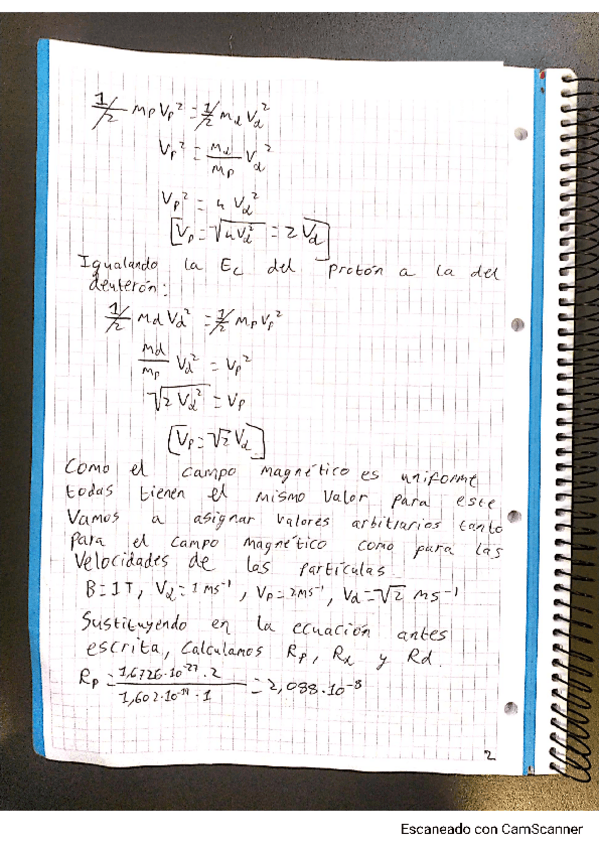 1/2 mpVp² = 1/2 mα Vα²
Vp² = mα/mp Vα²
Vp² = 4 Vα²
[Vp = √4Vα² = 2Vα]
Igualando la Ec del protón a la del
deuterón:
1/2 md Vd² = 1/2 mpVp²
md/mp Vd² = Vp²
√2 Vd² = Vp
[Vp = √2 Vd]
Como el campo magnético es uniforme
todas tienen el mismo valor para este
Vamos a asignar valores arbitrarios tanto
para el campo magnético como para las
velocidades de las partículas
B = 1T, Vα = 1 ms⁻¹, Vp = 2ms⁻¹, Vd = √2 ms⁻¹
Sustituyendo en la ecuación antes
escrita, calculamos Rp, Rα y Rd.
Rp = 1,6726·10⁻²⁷·2 / 1,602·10⁻¹⁹·1 = 2,088·10⁻⁸
2
Escaneado con CamScanner